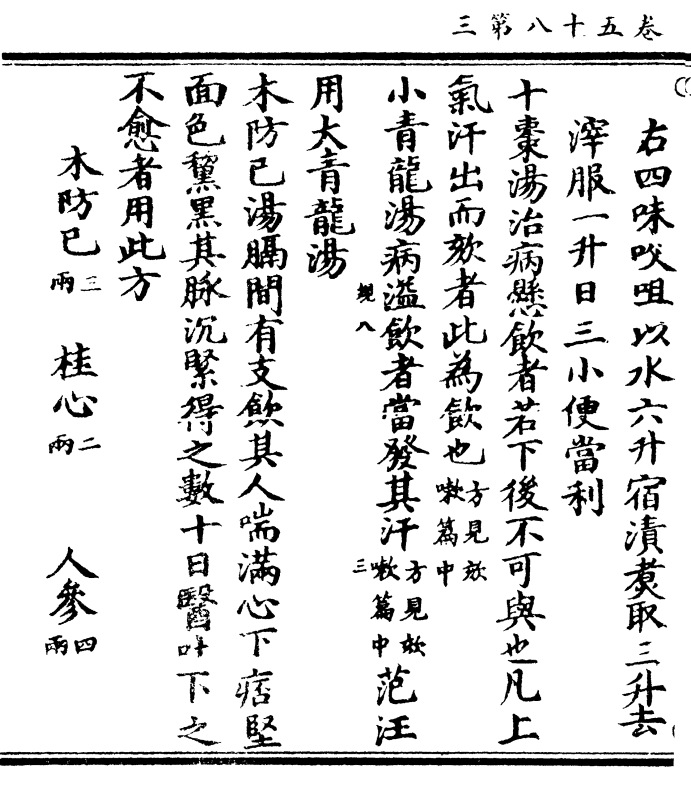 卷五十八第三
右四味㕮咀以水六升宿漬煑取三升去
滓服一升日三小便當利
十棗湯治病懸飲者若下後不可與也凡上
氣汗出而欬者此為飲也方見欬嗽篇中
小青龍湯病溢飲者當發其汗方見欬嗽篇中三范汪
規八
用大青龍湯
木防已湯膈間有支飲其人喘滿心下痞堅
面色黧黑其脉沉緊得之數十日醫吐下之
不愈者用此方
木防已三兩 桂心二兩 人參四兩